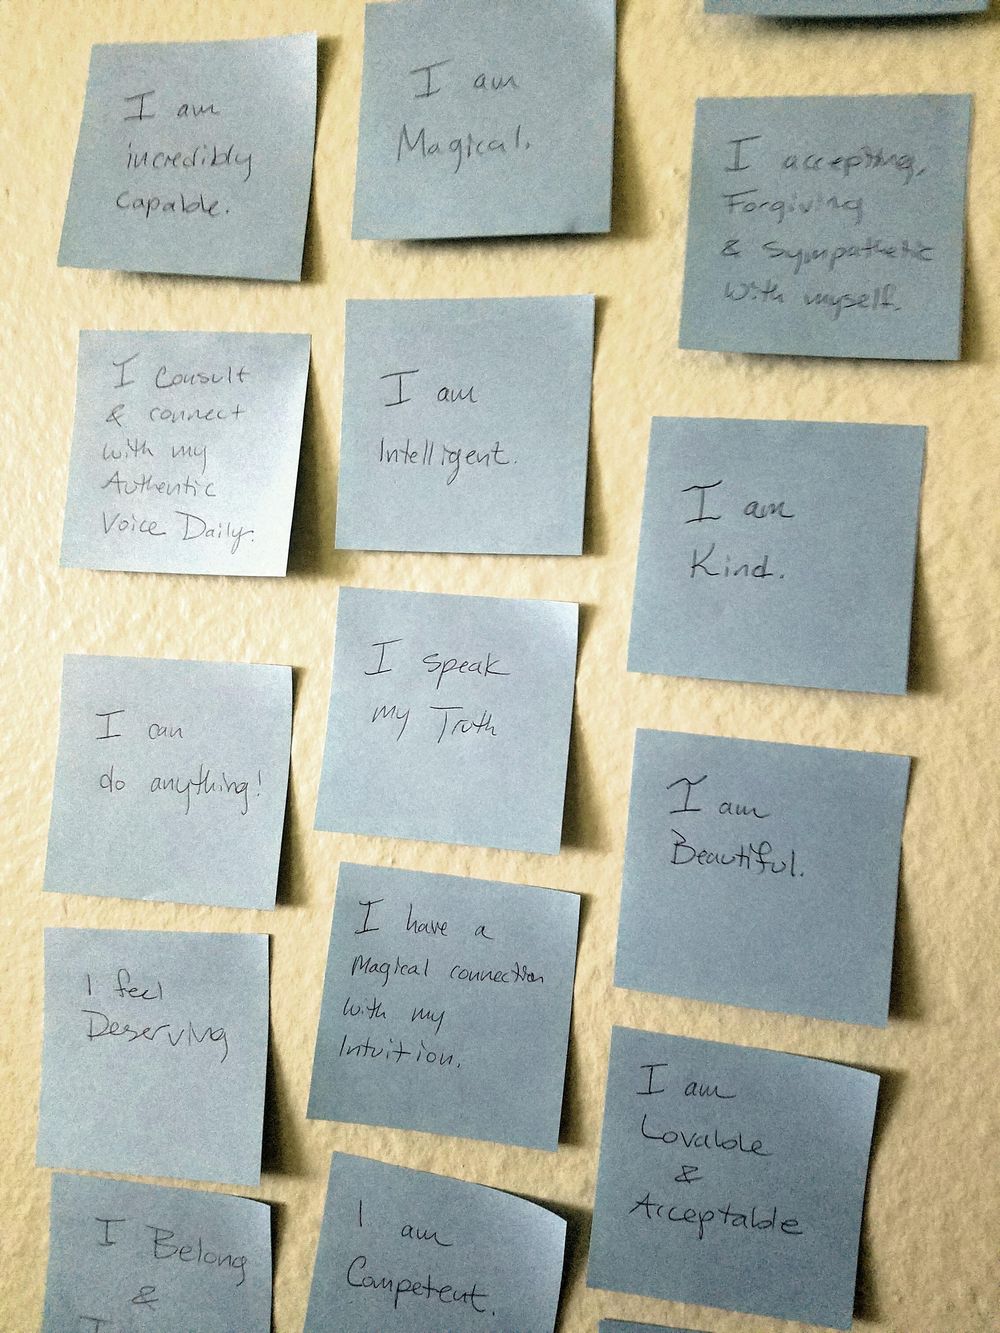 I am
incredibly
capable.
I consult
& connect
with my
Authentic
Voice Daily.
I can
do anything!
I feel
Deserving
I Belong
&
I am
Magical.
I am
Intelligent.
I speak
my Truth
I have a
Magical connection
with my
Intuition.
I am
Competent.
I accepting,
Forgiving
& Sympathetic
with myself.
I am
Kind.
I am
Beautiful.
I am
Lovable
&
Acceptable